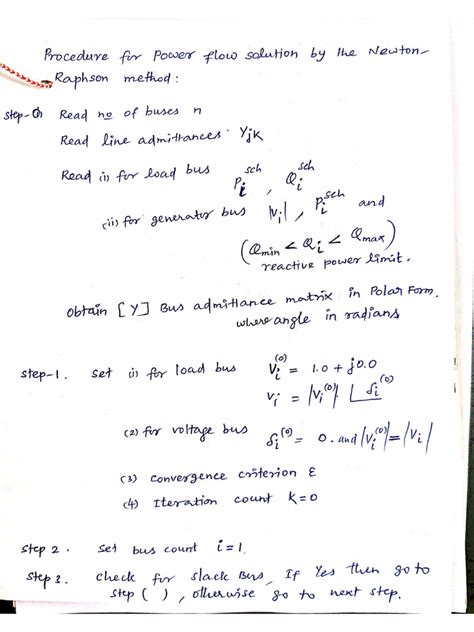 Procedure for Power flow solution by the Newton-
Raphson method:
Step-0 Read no of buses n
Read line admittances Yjk
Read (i) for load bus Pi^sch, Qi^sch
(ii) for generator bus |Vi|, Pi^sch and
(Qmin < Qi < Qmax)
reactive power limit.
Obtain [Y] Bus admittance matrix in Polar Form.
where angle in radians
Step-1. Set (i) for load bus Vi^(0) = 1.0 + j0.0
Vi = |Vi^(0)| ∠δi^(0)
(2) for voltage bus δi^(0) = 0. and |Vi^(0)| = |Vi|
(3) convergence criterion ε
(4) Iteration count K=0
Step 2. Set bus count i=1.
Step 3. Check for slack Bus, If Yes then go to
step ( ), otherwise go to next step.